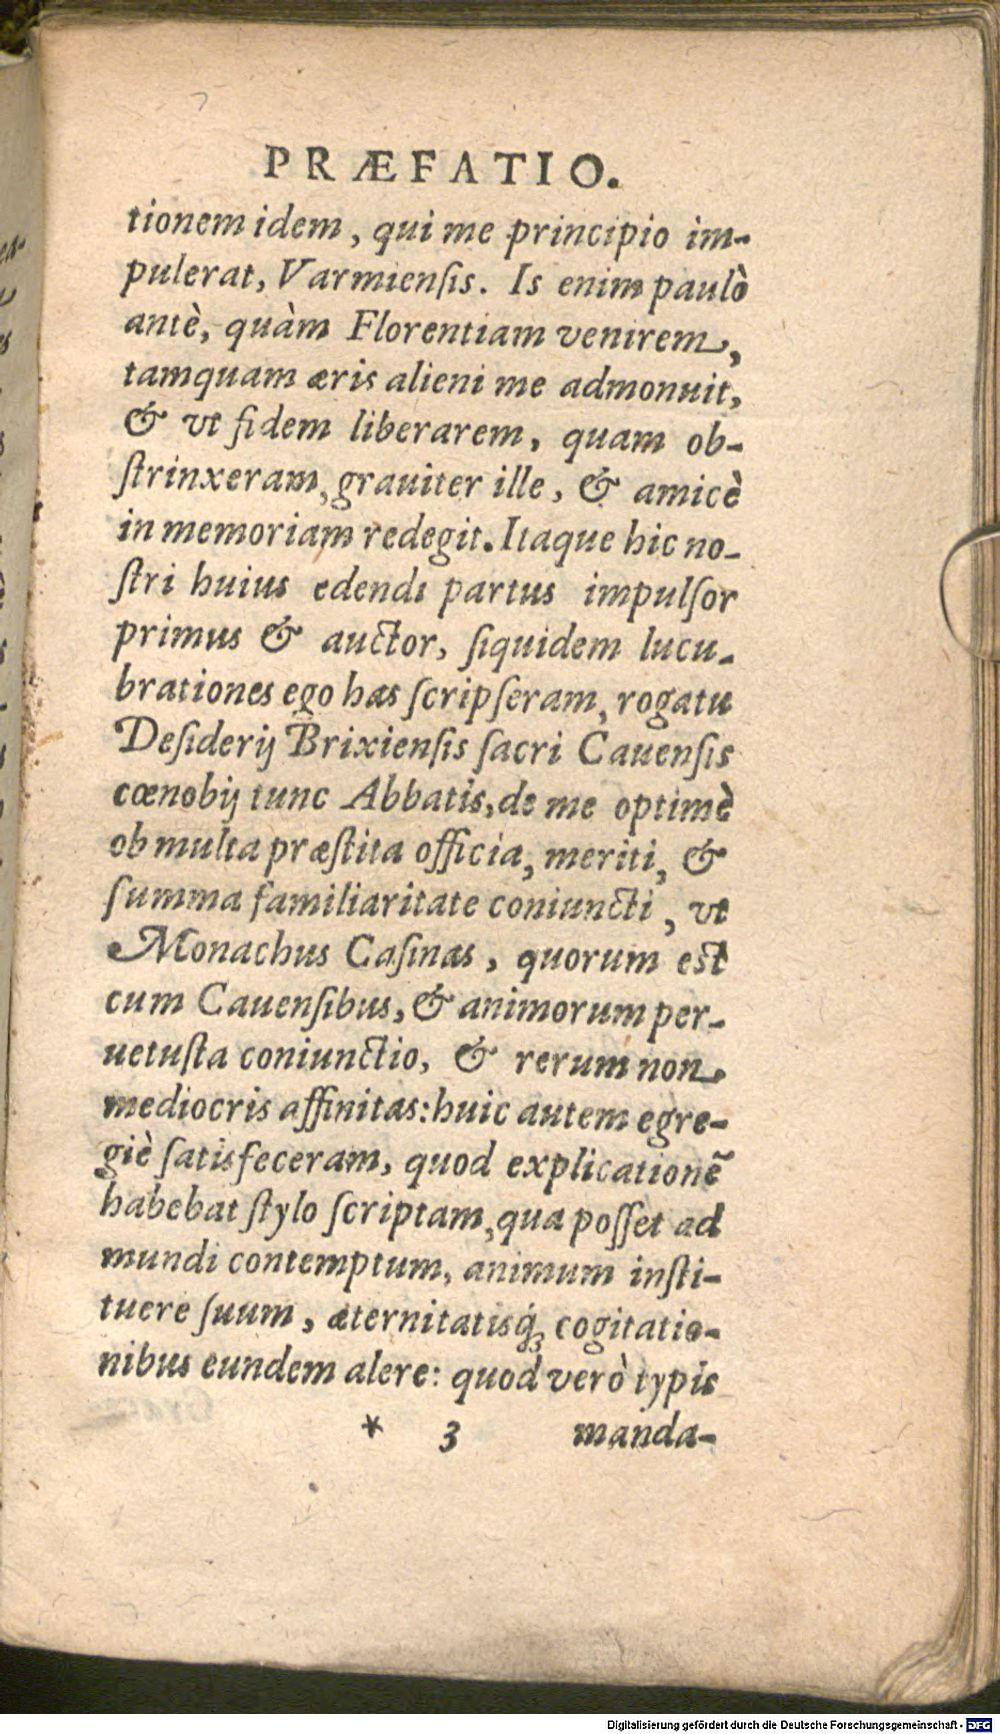 PRÆFATIO.
tionem idem, qui me principio im-
pulerat, Varmienſis. Is enim paulò
antè, quàm Florentiam venirem,
tamquam æris alieni me admonuit,
& vt fidem liberarem, quam ob-
ſtrinxeram, grauiter ille, & amicè
in memoriam redegit. Itaque hic no-
ſtri huius edendi partus impulſor
primus & auctor, ſiquidem lucu-
brationes ego has ſcripſeram, rogatu
Deſiderij Brixienſis ſacri Cauenſis
cœnobij tunc Abbatis, de me optimè
ob multa præſtita officia, meriti, &
ſumma familiaritate coniuncti, vt
Monachus Caſinas, quorum est
cum Cauenſibus, & animorum per-
uetuſta coniunctio, & rerum non
mediocris affinitas: huic autem egre-
giè ſatisfeceram, quod explicationẽ
habebat ſtylo ſcriptam, qua poſſet ad
mundi contemptum, animum inſti-
tuere ſuum, æternitatisq́; cogitatio-
nibus eundem alere: quod verò typis
* 3 manda-
Digitalisierung gefördert durch die Deutsche Forschungsgemeinschaft - DFG